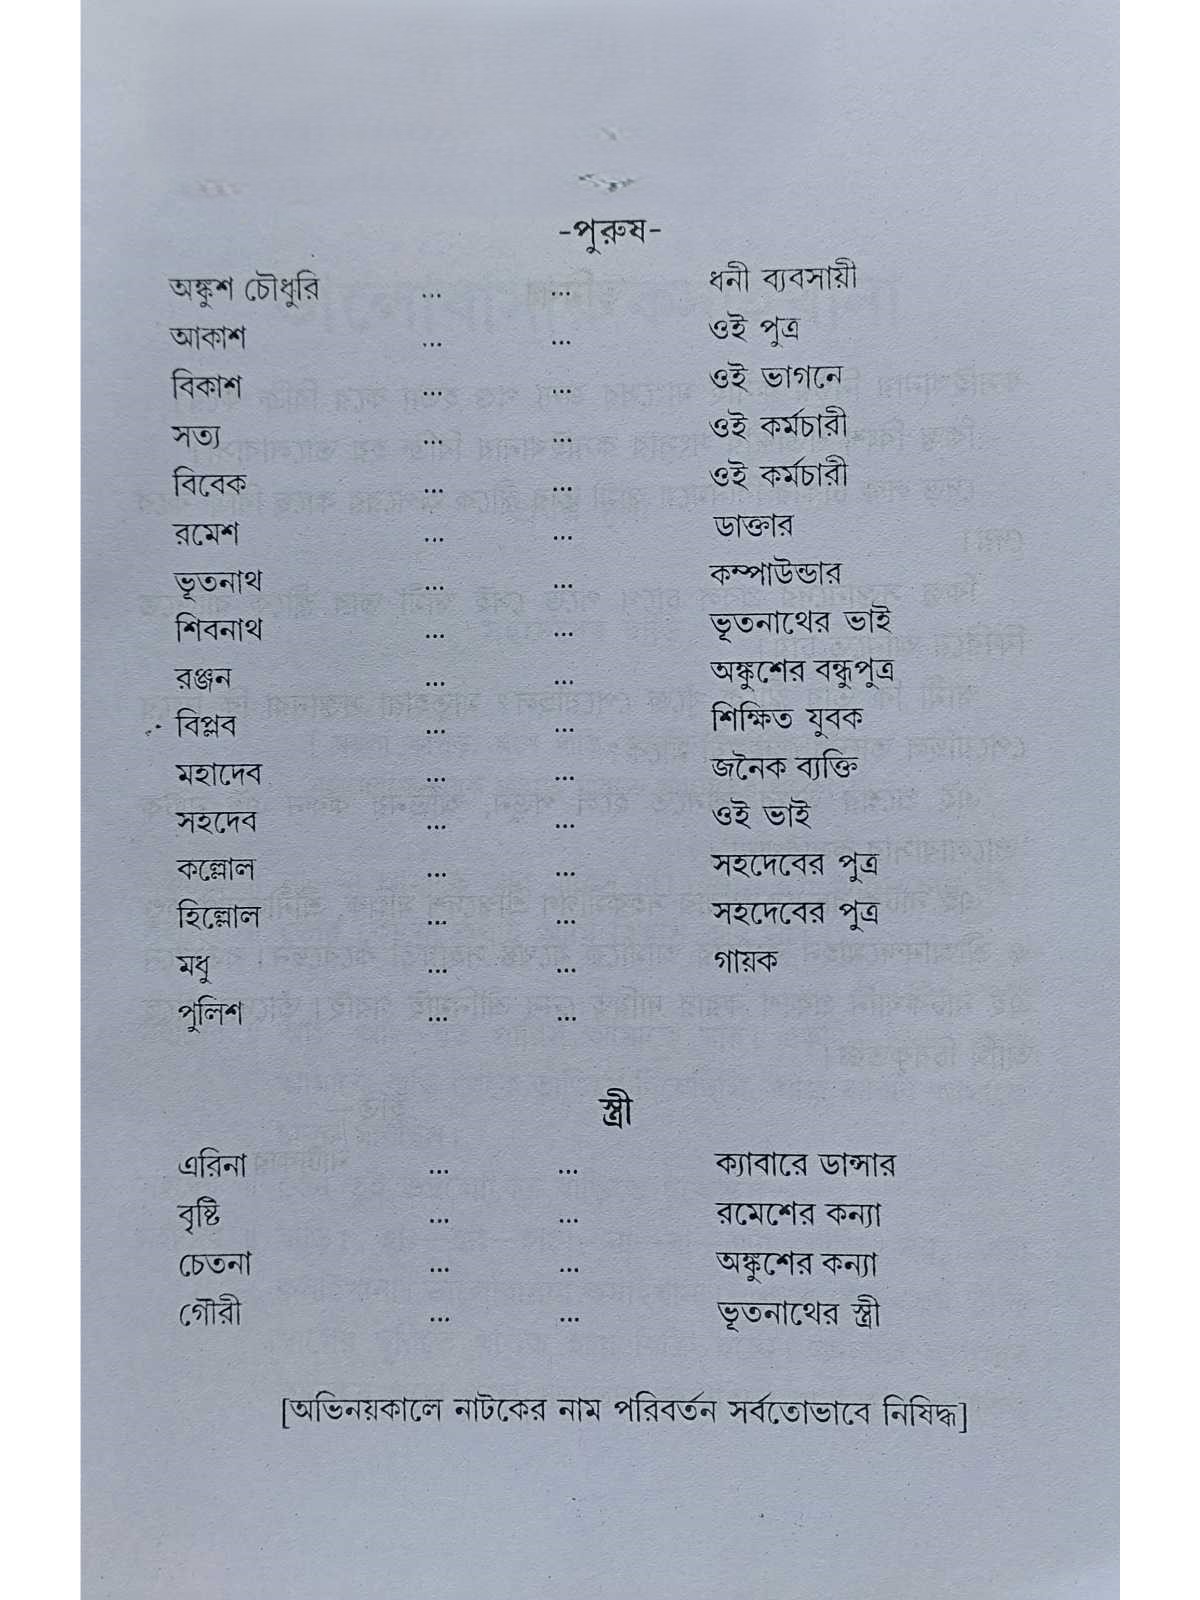 -পুরুষ-
অঙ্কুশ চৌধুরি ... ... ধনী ব্যবসায়ী
আকাশ ... ... ওই পুত্র
বিকাশ ... ... ওই ভাগনে
সত্য ... ... ওই কর্মচারী
বিবেক ... ... ওই কর্মচারী
রমেশ ... ... ডাক্তার
ভূতনাথ ... ... কম্পাউন্ডার
শিবনাথ ... ... ভূতনাথের ভাই
রঞ্জন ... ... অঙ্কুশের বন্ধুপুত্র
বিপ্লব ... ... শিক্ষিত যুবক
মহাদেব ... ... জনৈক ব্যক্তি
সহদেব ... ... ওই ভাই
কল্লোল ... ... সহদেবের পুত্র
হিল্লোল ... ... সহদেবের পুত্র
মধু ... ... গায়ক
পুলিশ ... ...
স্ত্রী
এরিনা ... ... ক্যাবারে ডান্সার
বৃষ্টি ... ... রমেশের কন্যা
চেতনা ... ... অঙ্কুশের কন্যা
গৌরী ... ... ভূতনাথের স্ত্রী
[অভিনয়কালে নাটকের নাম পরিবর্তন সর্বতোভাবে নিষিদ্ধ]